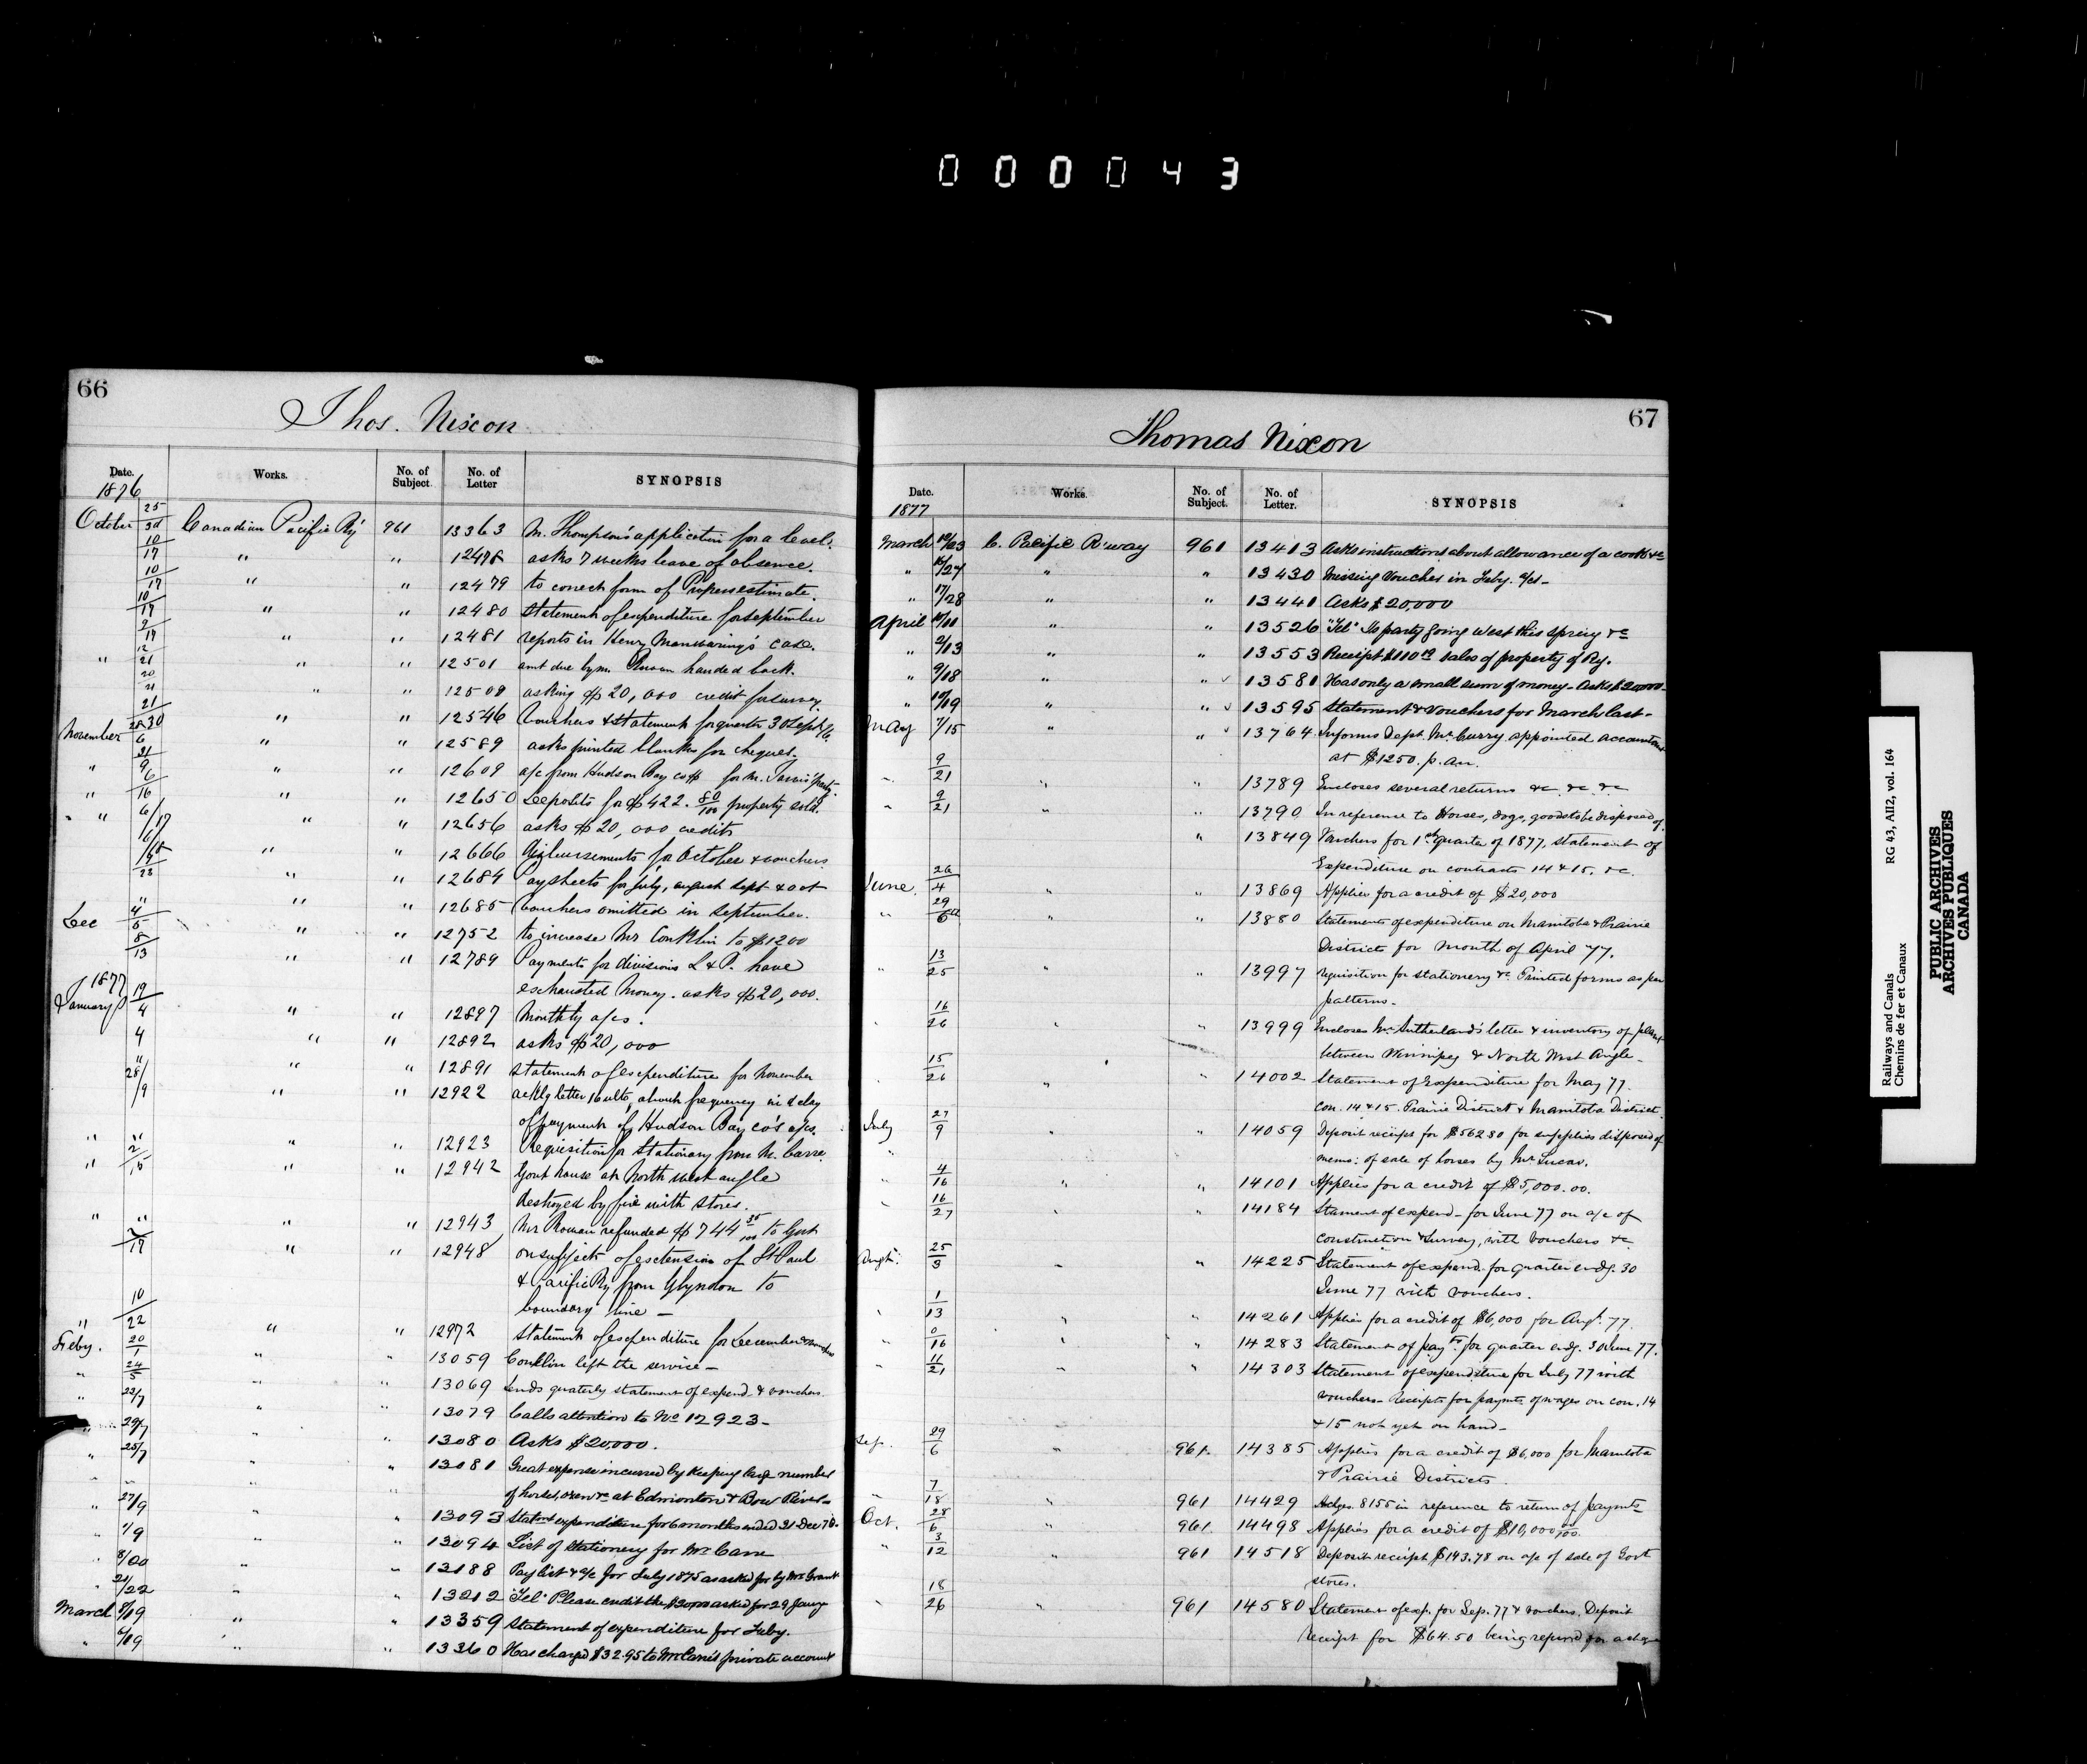 000043
66
Thos. Nixon
Date. Works. No. of Subject. No. of Letter SYNOPSIS
1876
October 25/30 Canadian Pacific Ry 961 13363 M. Thompson's application for a level.
10/17 " " 12478 asks 7 weeks leave of absence.
10/17 " " 12479 to correct form of Progress estimate.
10/17 " " 12480 Statement of expenditure for September
9/19 " " 12481 reports in Henry Manwaring's case.
" 12/21 " " 12501 amt due by Mr. Rowan handed back.
20/21 " " 12508 asking $20,000 credit for survey.
21/30 " " 12546 Vouchers & statement for quarter 30 Sept/76
November 28/6 " " 12589 asks printed blanks for cheques.
" 31/9 " " 12609 a/c from Hudson Bay Co $ for M. Jarvis' party.
" 6/16 " " 12650 Deposits for $422.80/100 property sold.
" 6/17 " " 12656 asks $20,000 credit
" " 12666 Disbursements for October & vouchers
" " 12684 Paysheets for July, august Sept & Oct
" " 12685 Vouchers omitted in September.
Dec 4/5 " " 12752 to increase Mr Conklin to $1200
8/13 " " 12789 Payments for divisions L & P. have
exhausted money. asks $20,000.
1877
January 19/4 " " 12897 Monthly a/cs.
4 " " 12892 asks $20,000
" " " 12891 statement of expenditure for November
28/9 " " 12922 ackg letter 16 ulto, about frequency in delay
of payment of Hudson Bay Co's a/cs.
" " " " 12923 Requisition for Stationary from M. Carre.
" 2/15 " " 12942 Govt house at North west angle
destroyed by fire with stores.
" " " " 12943 Mr Rowan refunded $744 35/100 to Govt
2/19 " " 12948 on subject of extension of St Paul
& Pacific Ry from Glyndon to
boundary line —
" 10/22 " " 12972 Statement of expenditure for December & vouchers
Feby. 20/1 " " 13059 Conklin left the service —
" 24/5 " " 13069 Sends quaterly statement of expend. & vouchers.
" 23/7 " " 13079 Calls attention to No 12923 —
" 29/7 " " 13080 Asks $20,000.
" 25/7 " " 13081 Great expense incurred by keeping large number
of horses, oxen &c at Edmonton & Bow River —
" 27/9 " " 13093 Statmt expenditure for 6 months ended 31 Dec 76.
" 1/9 " " 13094 List of stationery for Mr Carre
" 8/20 " " 13188 Pay list & a/c for July 1875 as asked for by Mr Grant
" 21/22 " " 13212 "Tel" Please credit the $20,000 asked for 29 Jany
March 8/19 " " 13359 Statement of expenditure for Feby.
" 6/19 " " 13360 Has charged $32.95 to Mr Carre's private account
67
Thomas Nixon
Date. Works. No. of Subject. No. of Letter. SYNOPSIS
1877
March C. Pacific R'way 961 13413 Asks instructions about allowance of a cook &c
" 16/27 " " 13430 Missing Voucher in Feby. a/cs —
" 17/28 " " 13441 Asks $20,000
April 10/11 " " 13526 "Tel" Is party going West this spring &c
" 2/13 " " 13553 Receipt $110 sales of property of Ry.
" 9/18 " " 13581 Has only a small sum of money — Asks $20,000 —
" 10/19 " " 13595 Statement & Vouchers for March last —
May 7/15 " " 13764 Informs Dept. Mr Curry appointed accountant
at $1250. p. an.
" 9/21 " " 13789 Encloses several returns &c &c &c
" 9/21 " 13790 In reference to Horses, dogs, goods to be disposed of.
" 13849 Vouchers for 1st quarter of 1877, statement of
Expenditure on contracts 14 & 15. &c.
June 26/4 " " 13869 Applies for a credit of $20,000
" 29/6 " " 13880 Statements of expenditure on Manitoba & Prairie
Districts for Month of April 77.
" 13/25 " " 13997 requisition for stationery &c Printed forms as per
patterns.
" 16/26 " " 13999 Encloses Mr Sutherland's letter & inventory of plant
between Winnipeg & North West Angle —
15/26 " " 14002 Statement of Expenditure for May 77.
con. 14 & 15. Prairie District & Manitoba District.
July 27/9 " " 14059 Deposit receipt for $562.80 for supplies disposed of
memo: of sale of horses by Mr Lucas.
" 4/16 " " 14101 Applies for a credit of $5,000.00.
" 16/27 " 14184 Stament of expend — for June 77 on a/c of
construction & Survey, with vouchers &c
Augt. 25/3 " " 14225 Statement of expend. for quarter endg. 30
June 77 with vouchers.
" 1/13 " " 14261 Applies for a credit of $6,000 for Augt. 77.
" 16 " " 14283 Statement of payts for quarter endg. 30 June 77.
" 11/21 " " 14303 Statement of expenditure for July 77 with
vouchers — Receipts for paymts of wages on con. 14
& 15 not yet on hand —
Sep. 29/6 " 961. 14385 Applies for a credit of $6,000 for Manitoba
& Prairie Districts.
" 7/18 " 961 14429 Ackges. 8155 in reference to return of paymts
Oct. 28/6 " 961. 14498 Applies for a credit of $10,000 00/100.
" 3/12 961 14518 Deposit receipt $143.78 on a/c of sale of Govt
stores.
" 18/26 " 961 14580 Statement of exp. for Sep. 77 & vouchers. Deposit
receipt for $64.50 being
Railways and Canals
Chemins de fer et Canaux
RG 43, AII2, vol. 164
PUBLIC ARCHIVES
ARCHIVES PUBLIQUES
CANADA